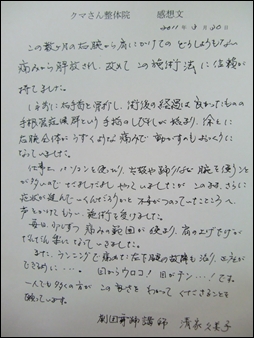 クマさん整体院 感想文
2011年9月30日
この数ヶ月の右腕から肩にかけてのどうしようもない
痛みから解放され、改めてこの施術法に信頼が
持てました。
に右手首を骨折し、術後の経過は良かったものの
手根管症候群という手指のしびれが始まり、徐々に
右腕全体がうずくような痛みで動かすのもおっくうに
なっていました。
仕事上、パソコンを使ったり、お皿や鍋ふりなど腕を使うこと
が多いのでだましだましやっていましたが、このまま、さらに
症状が進んでいくんだろうかと不安がつのっていたところへ、
声をかけてもらい、施術を受けました。
毎日少しずつ痛みの範囲が狭まり、肩の上げ下げが
だんだん楽になってきました。
また、ランニングで痛めた左下腿の故障も治り、正座が
できるのに・・・。 目からウロコ! 目がテン・・・! です。
一人でも多くの方がこの良さをわかってくださることを
願っています。
講師 清家久美子